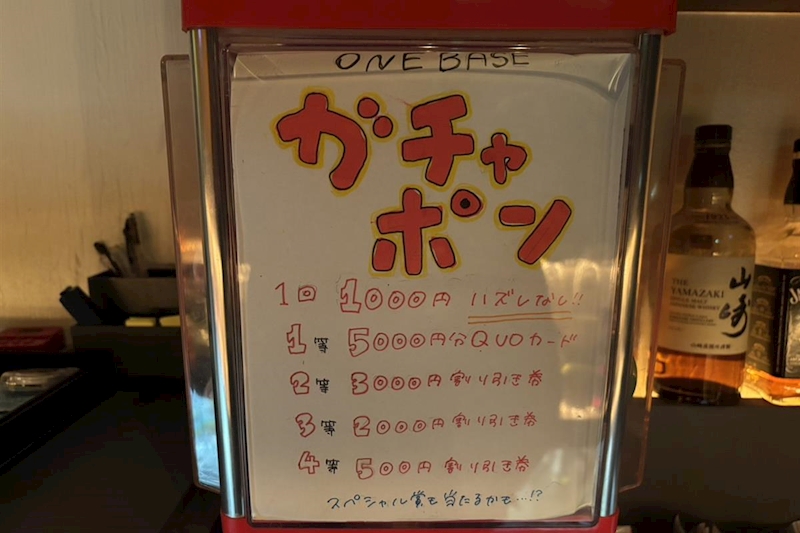 ONE BASE
ガチャ
ポン
1回 1000円 ハズレなし!!
1等 5000円分QUOカード
2等 3000円 割り引き券
3等 2000円 割り引き券
4等 500円 割り引き券
スペシャル賞も当たるかも…!?
THE
YAMAZAKI
山崎